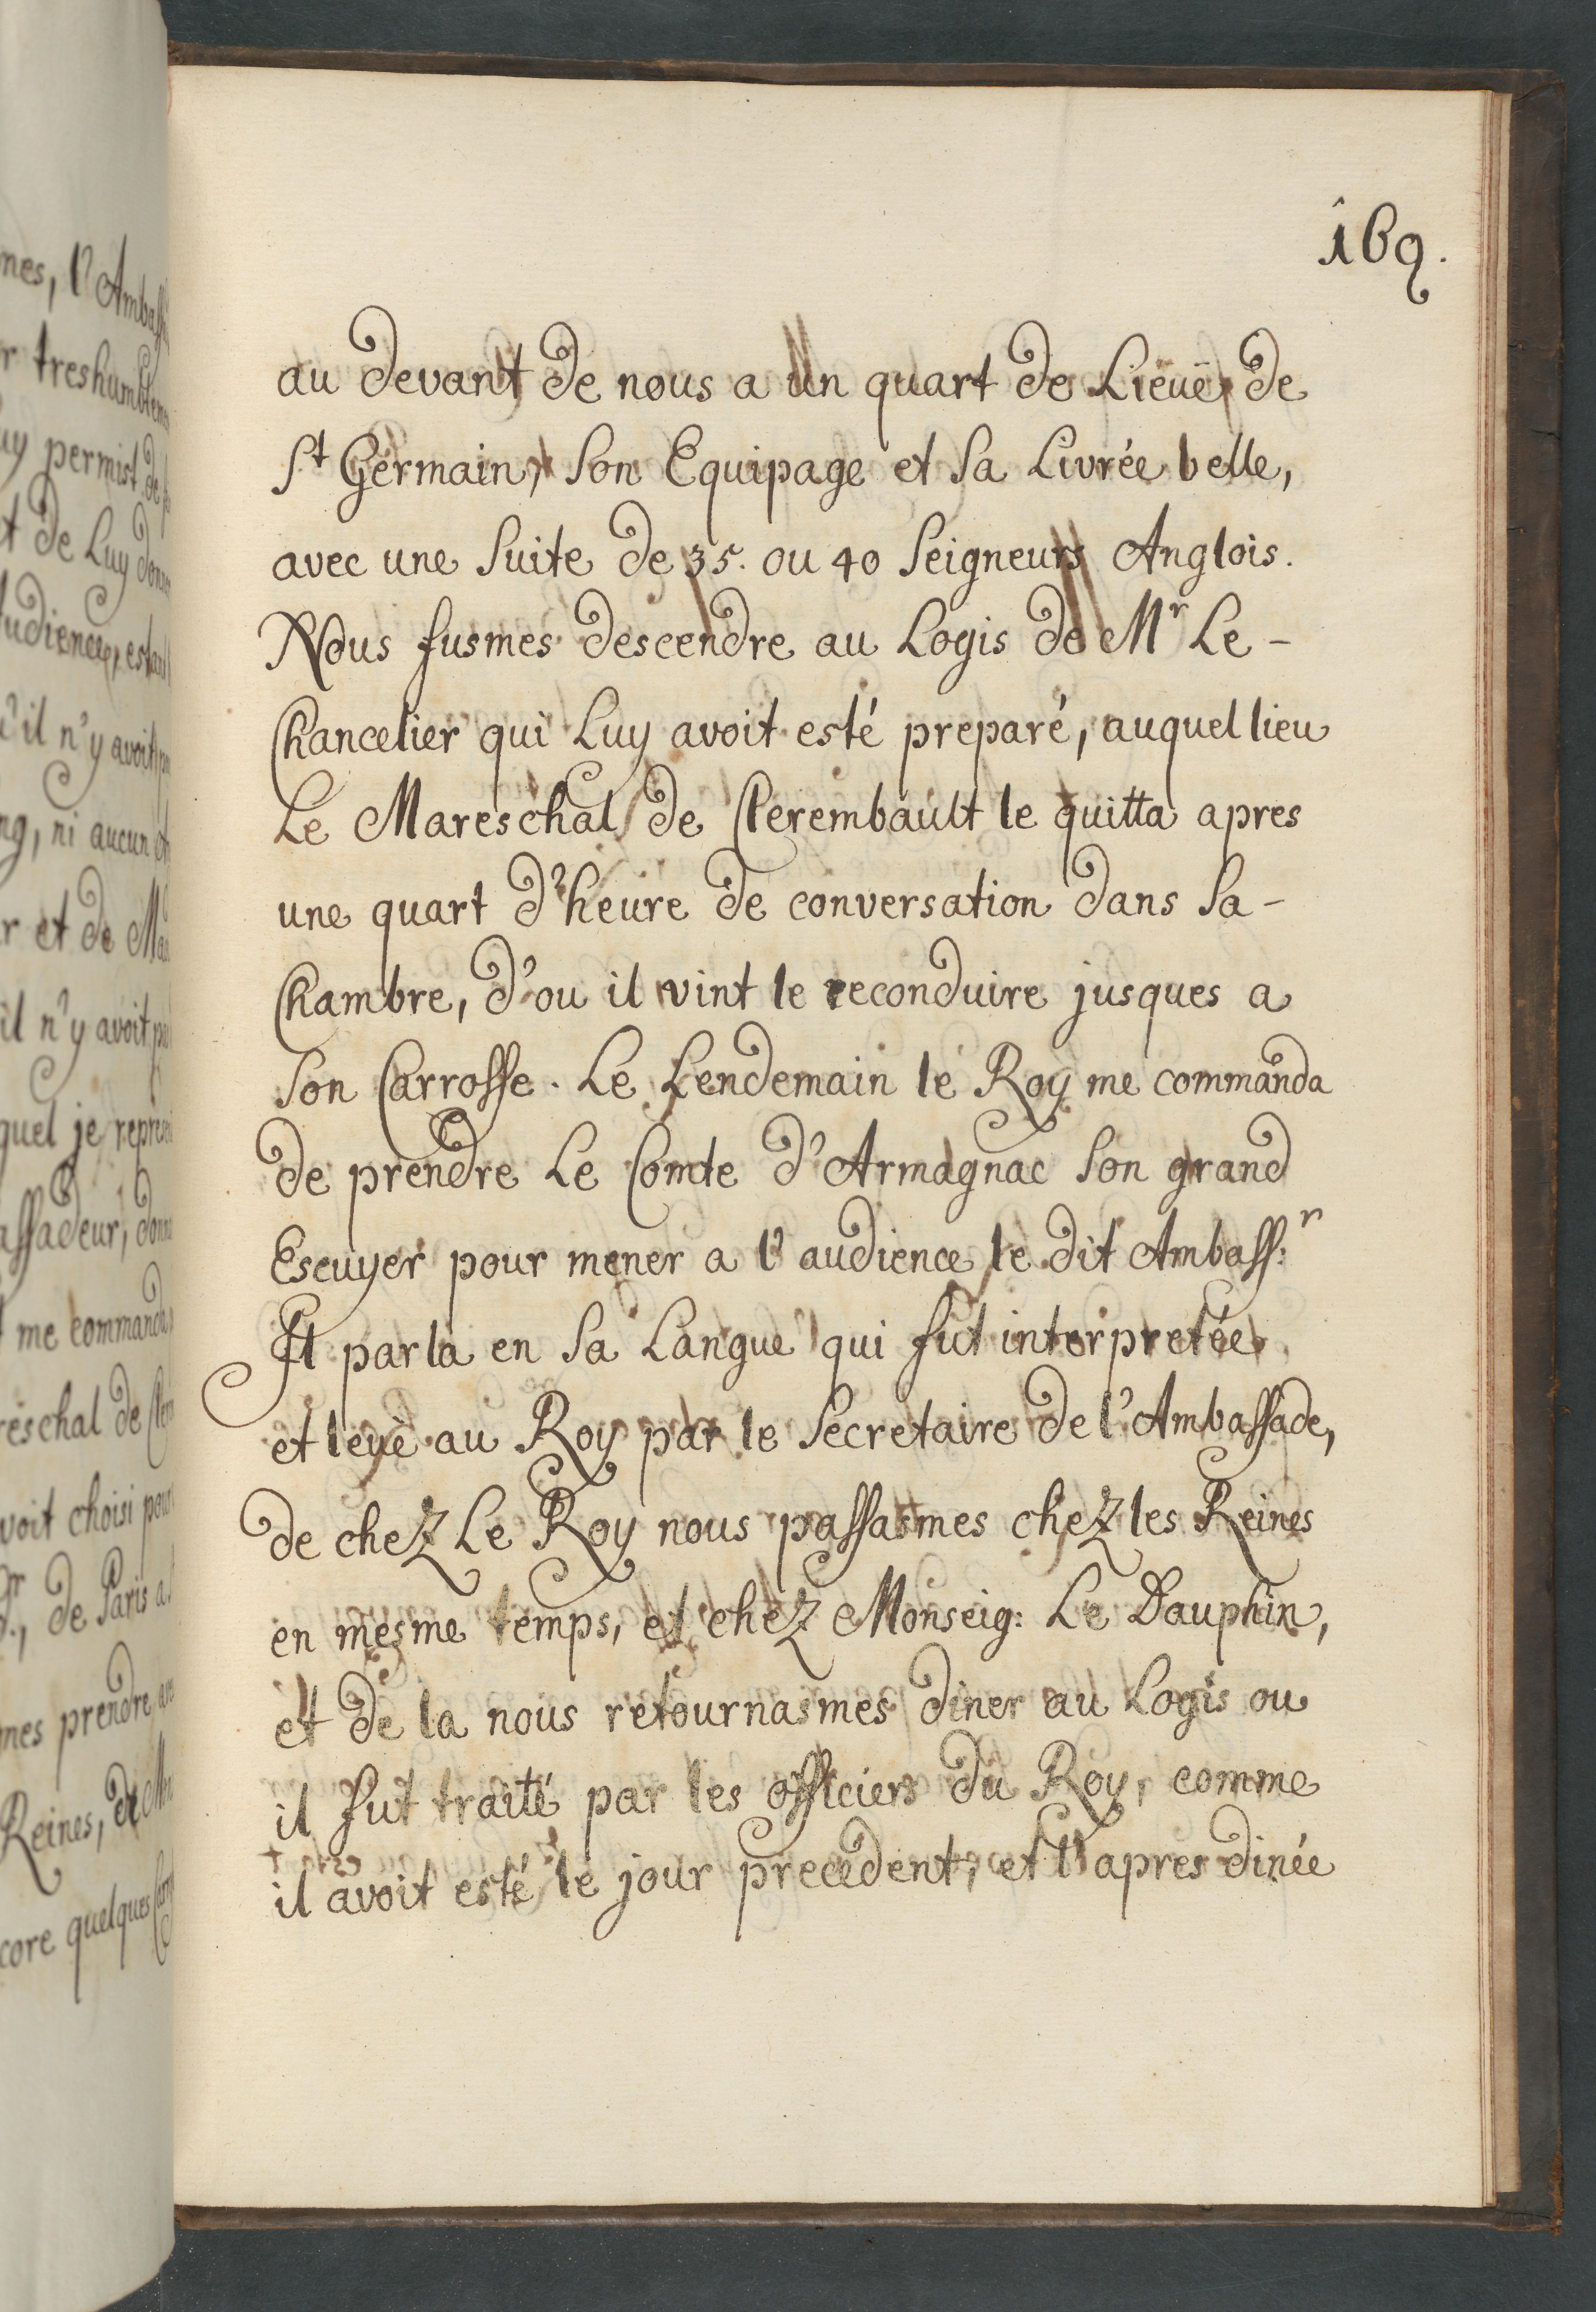 169.
au devant de nous a un quart de Lieuë de
St Germain, son Equipage et sa Livrée belle,
avec une suite de 35. ou 40 seigneurs Anglois.
Nous fusmes descendre au Logis de Mr Le-
Chancelier qui Luy avoit esté preparé, auquel lieu
Le Mareschal de Clerembault le quitta apres
une quart d'heure de conversation dans sa-
Chambre, d'ou il vint le reconduire jusques a
son Carrosse. Le Lendemain le Roy me commanda
de prendre Le Comte d'Armagnac son grand
Escuyer pour mener a l'audience le dit Ambass:r
Il parla en sa Langue qui fut interpretée
et leuë au Roy par le secretaire de l'Ambassade,
de chez Le Roy nous passasmes chez les Reines
en mesme temps, et chez Monseig: Le Dauphin,
et de la nous retournasmes diner au Logis ou
il fut traité par les officiers du Roy, comme
il avoit esté le jour precedent, et l'apres dinée
nes, l'Ambass
r treshumblem
uy permist de
t de Luy donn
udience, estant
'il n'y avoit
ng, ni aucun
r et de Ma
il n'y avoit
quel je repre
assadeur, donn
me commanda
reschal de Cler
voit choisi pour
de Paris a
mes prendre
Reines, de
core quelques